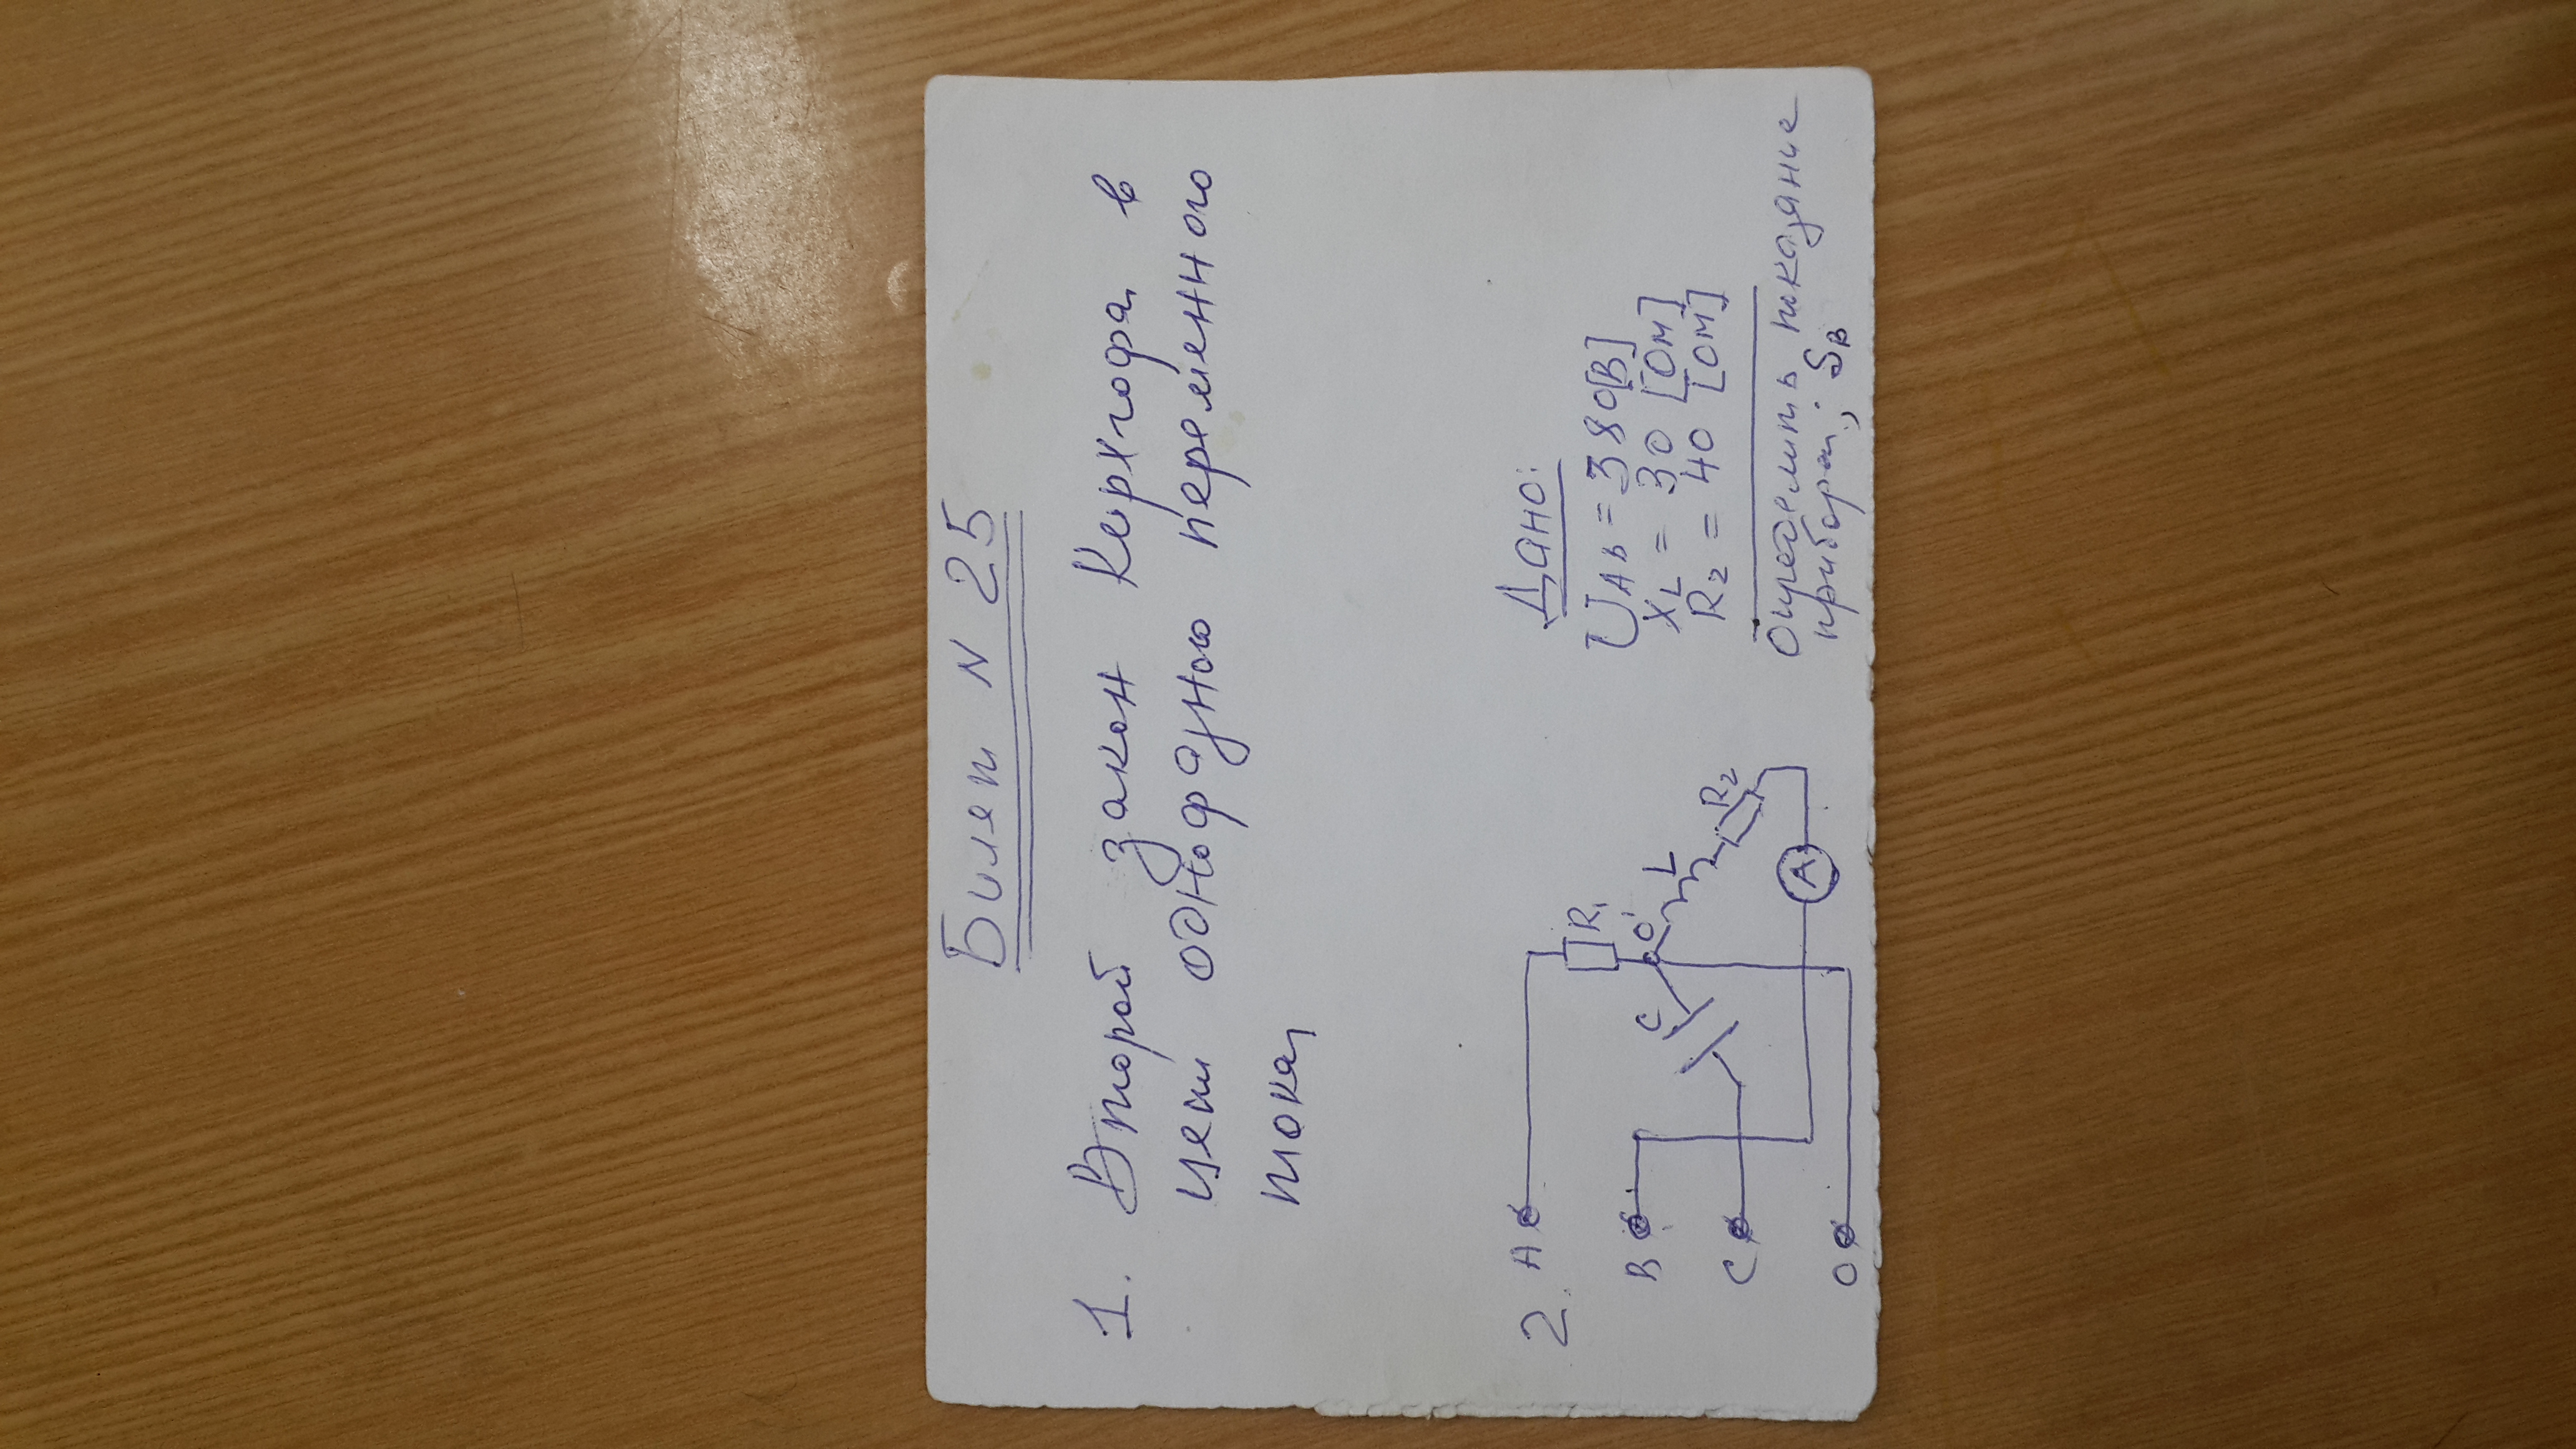 Билет N 25
1. Второй закон Кирхгофа в
цепи однофазного переменного
тока
2.
A
B
C
O
R₁
O'
C
L
R₂
A
Дано:
U_AB = 380[В]
X_L = 30 [Ом]
R₂ = 40 [Ом]
Определить показание
прибора; S_B